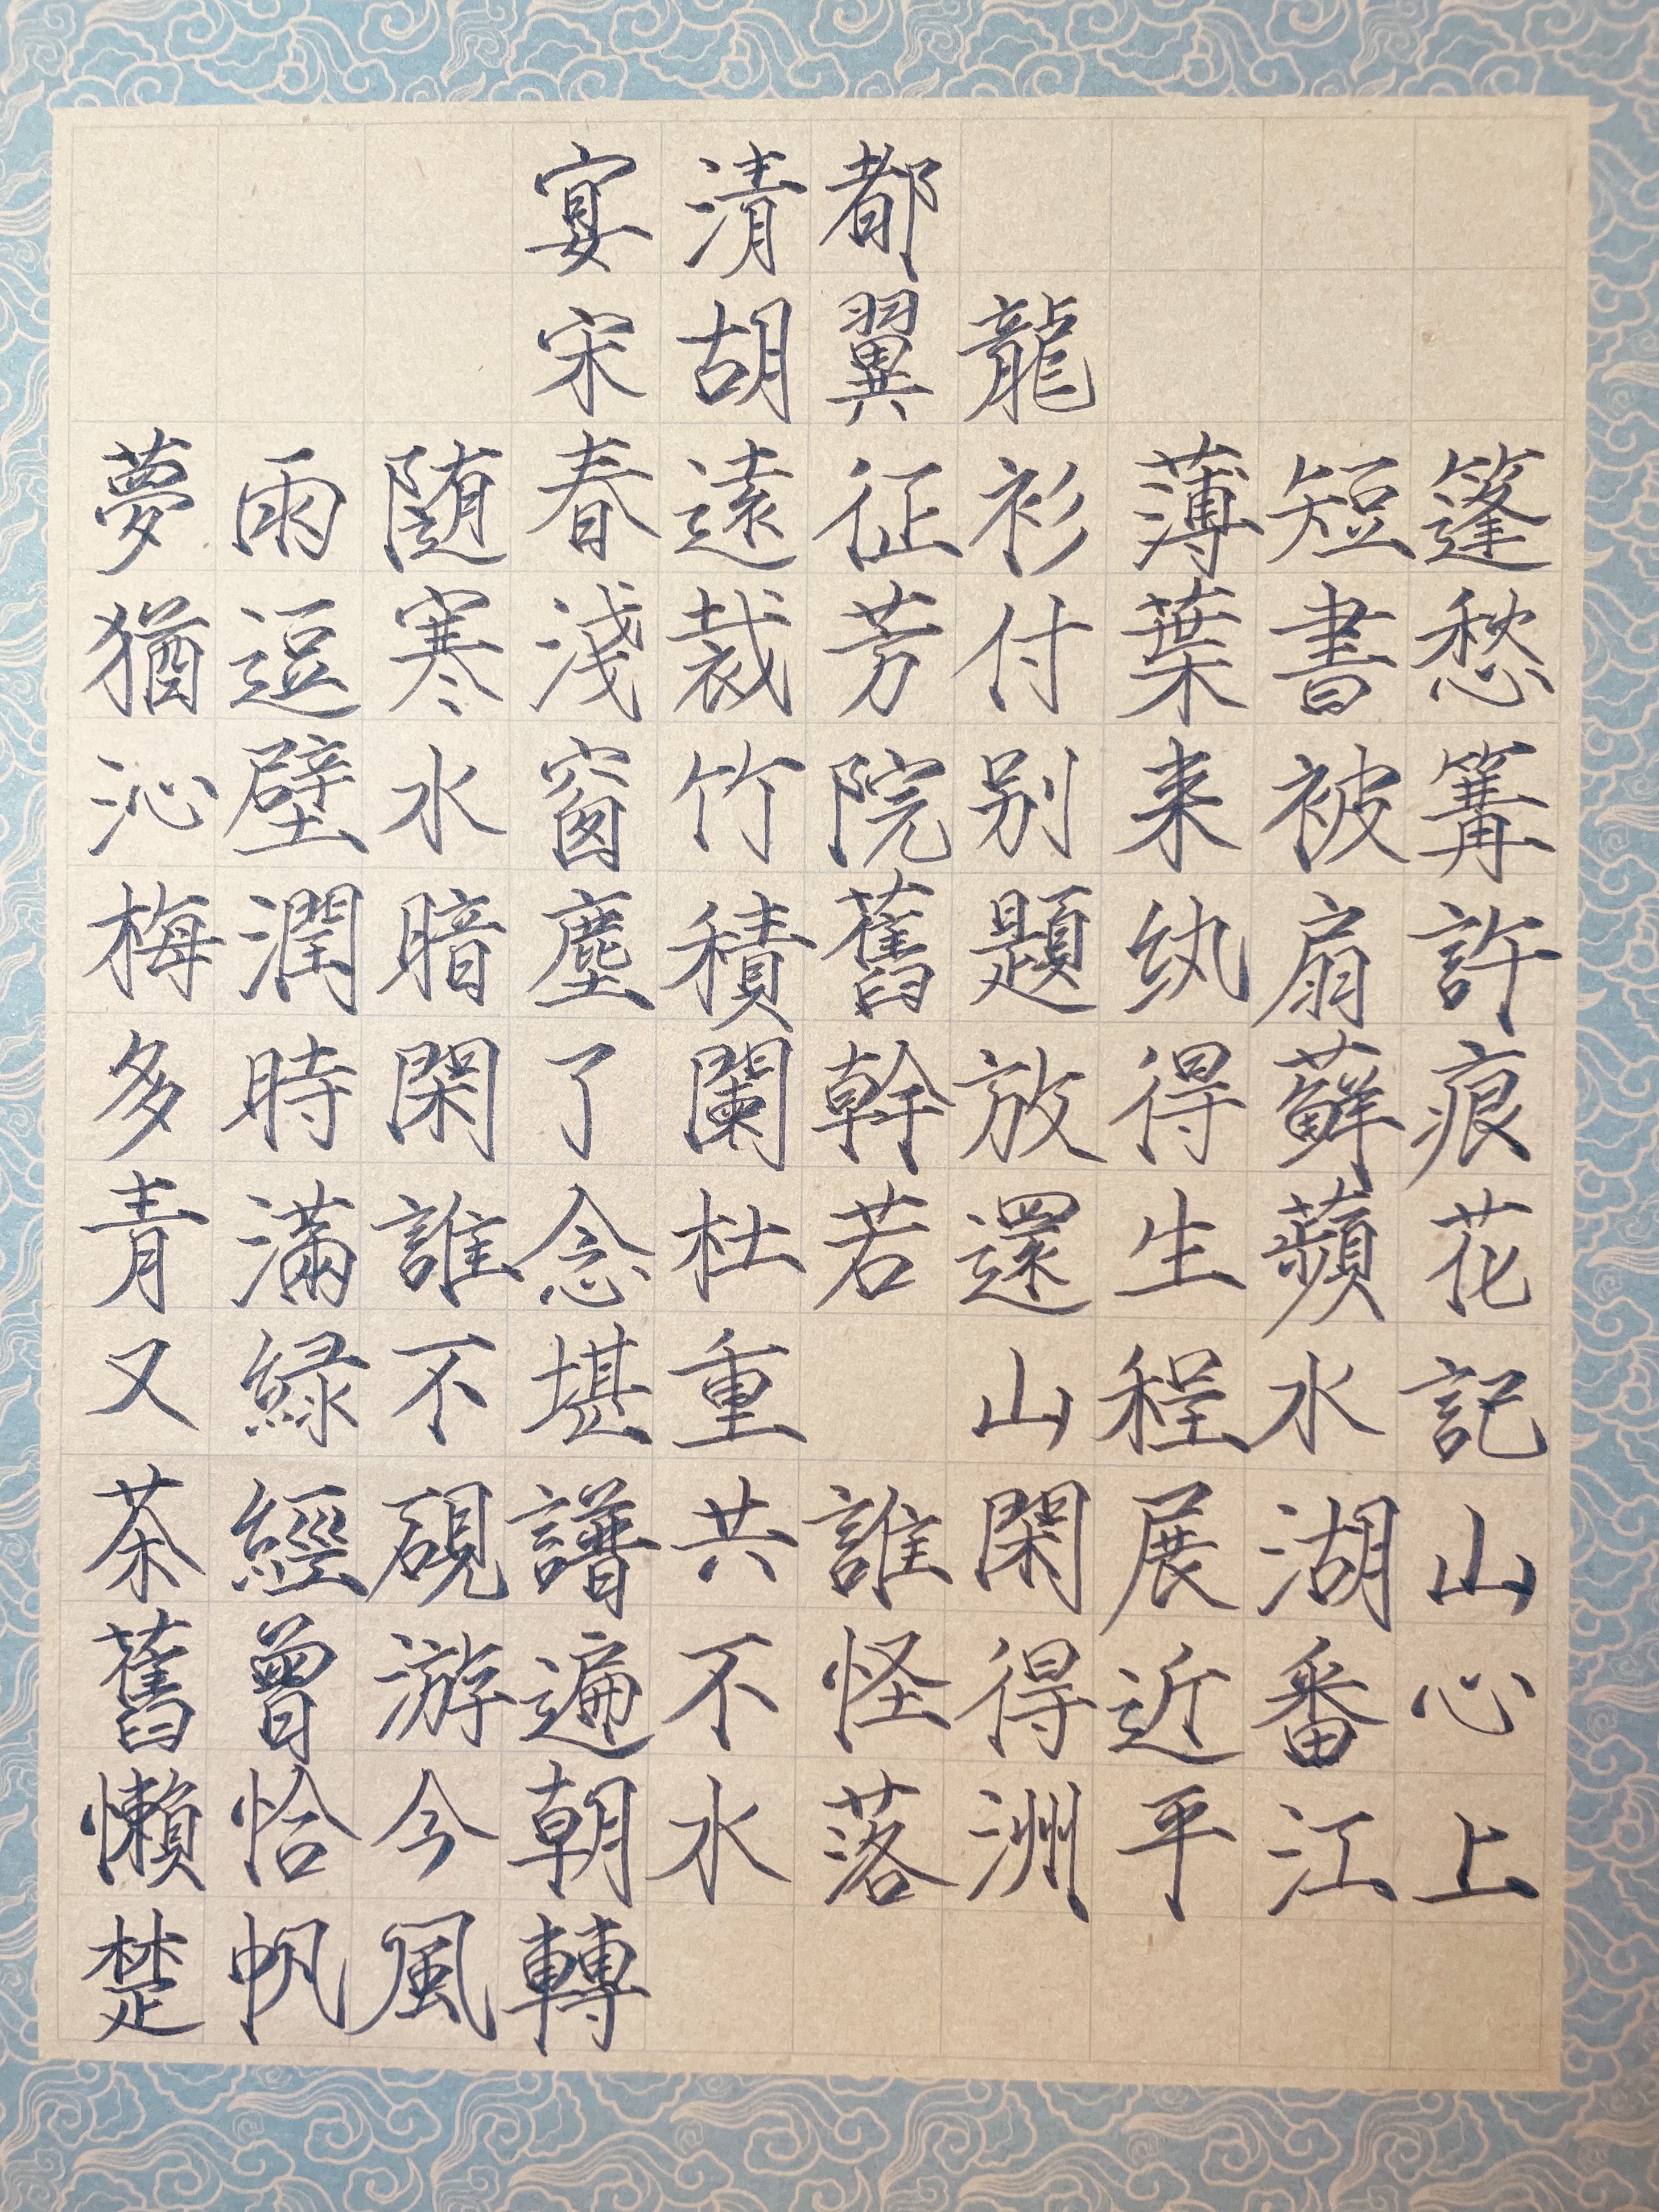 宴清都
宋胡翼龍
夢雨随春遠征衫薄短篷
猶逗寒淺裁芳付葉書愁
沁壁水窗竹院别来被篝
梅潤暗塵積舊題纨扇許
多時閑了闌幹放得蘚痕
青滿誰念杜若還生蘋花
又緑不堪重 山程水記
茶經硯譜共誰閑展湖山
舊曾游遍不怪得近番心
懶恰今朝水落洲平江上
楚帆風轉